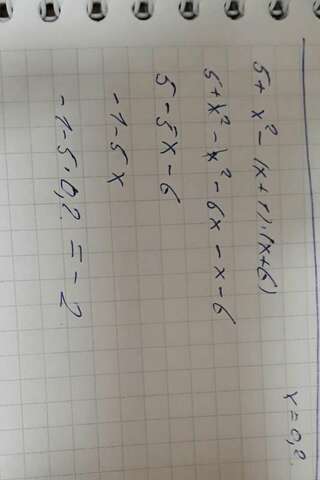 x = 0,2
5 + x² - (x+1)·(x+6)
5 + x² - x² - 6x - x - 6
5 - 5x - 6
-1-5x
-1-5·0,2 = -2